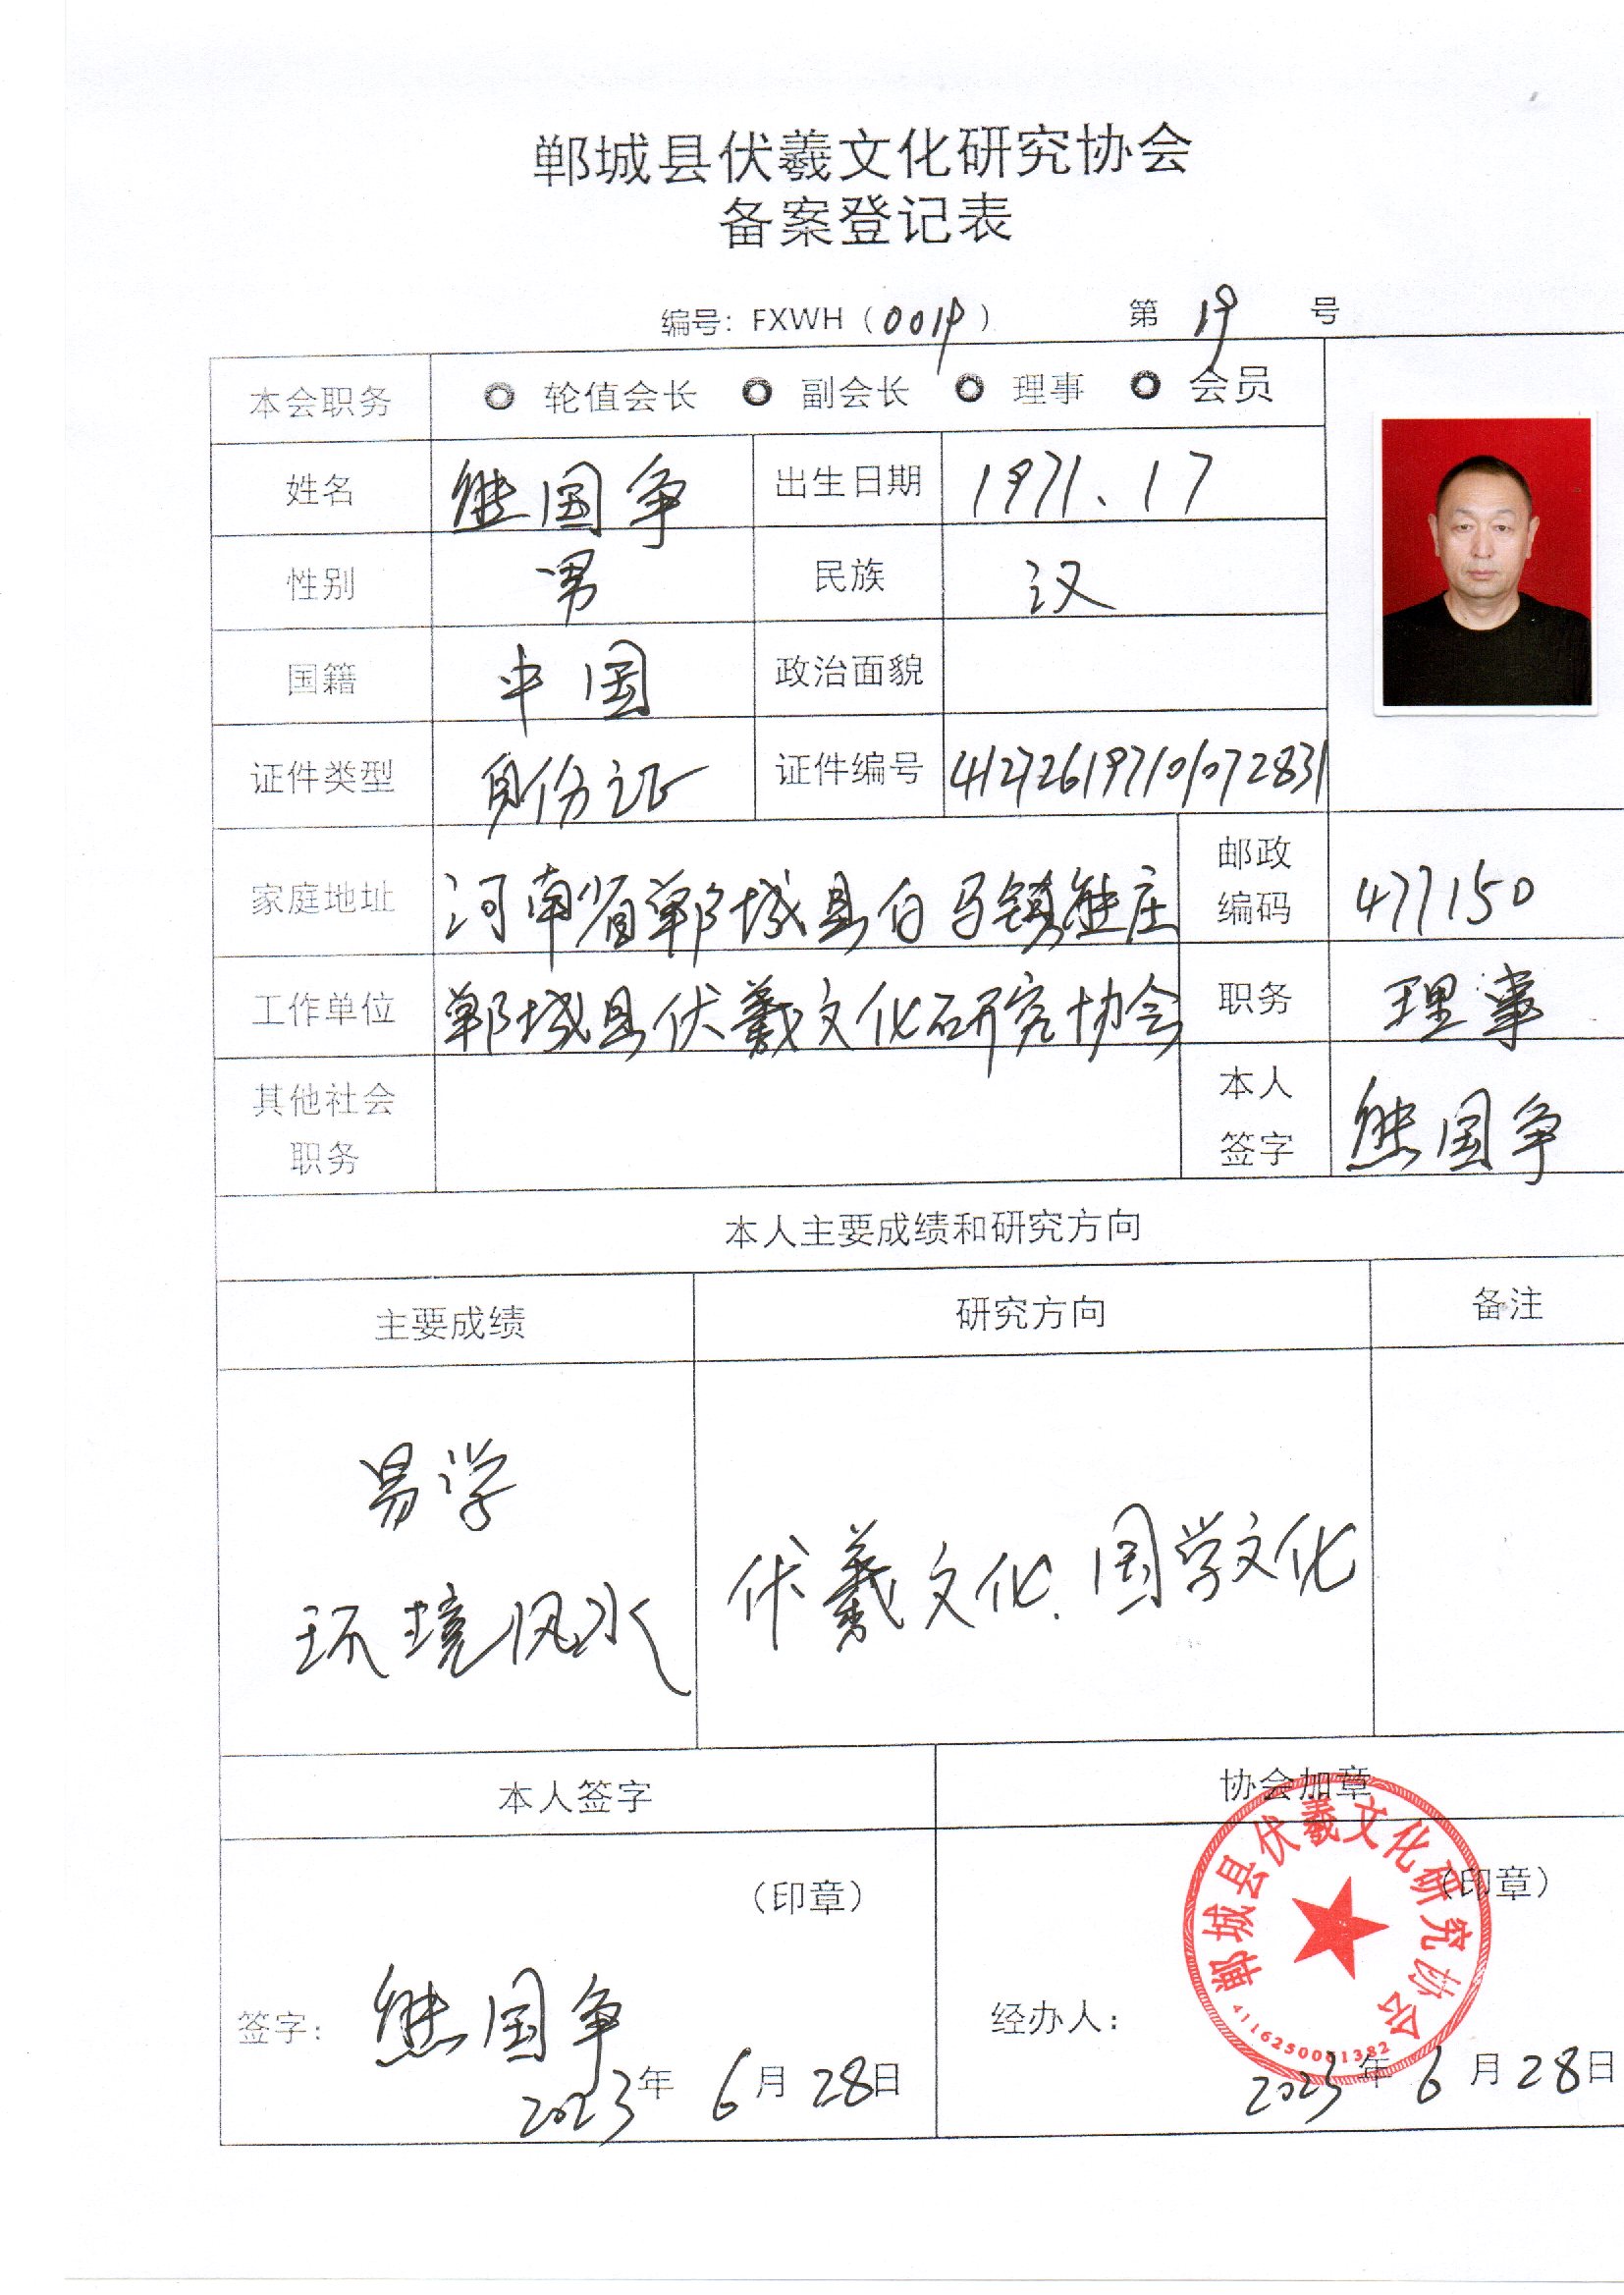 郸城县伏羲文化研究协会
备案登记表
编号：FXWH（0019） 第 19 号
本会职务 轮值会长 副会长 理事 会员
姓名 熊国争 出生日期 1971、1 7
性别 男 民族 汉
国籍 中国 政治面貌
证件类型 身份证 证件编号 412726197101072831
家庭地址 河南省郸城县白马镇熊庄 邮政编码 477150
工作单位 郸城县伏羲文化研究协会 职务 理事
其他社会职务 本人签字 熊国争
本人主要成绩和研究方向
主要成绩 研究方向 备注
易学
环境风水 伏羲文化、国学文化
本人签字 协会加章
（印章） （印章）
郸城县伏羲文化研究协会
4116250001382
签字： 熊国争 经办人：
2023年 6月28日 2023年 6月28日